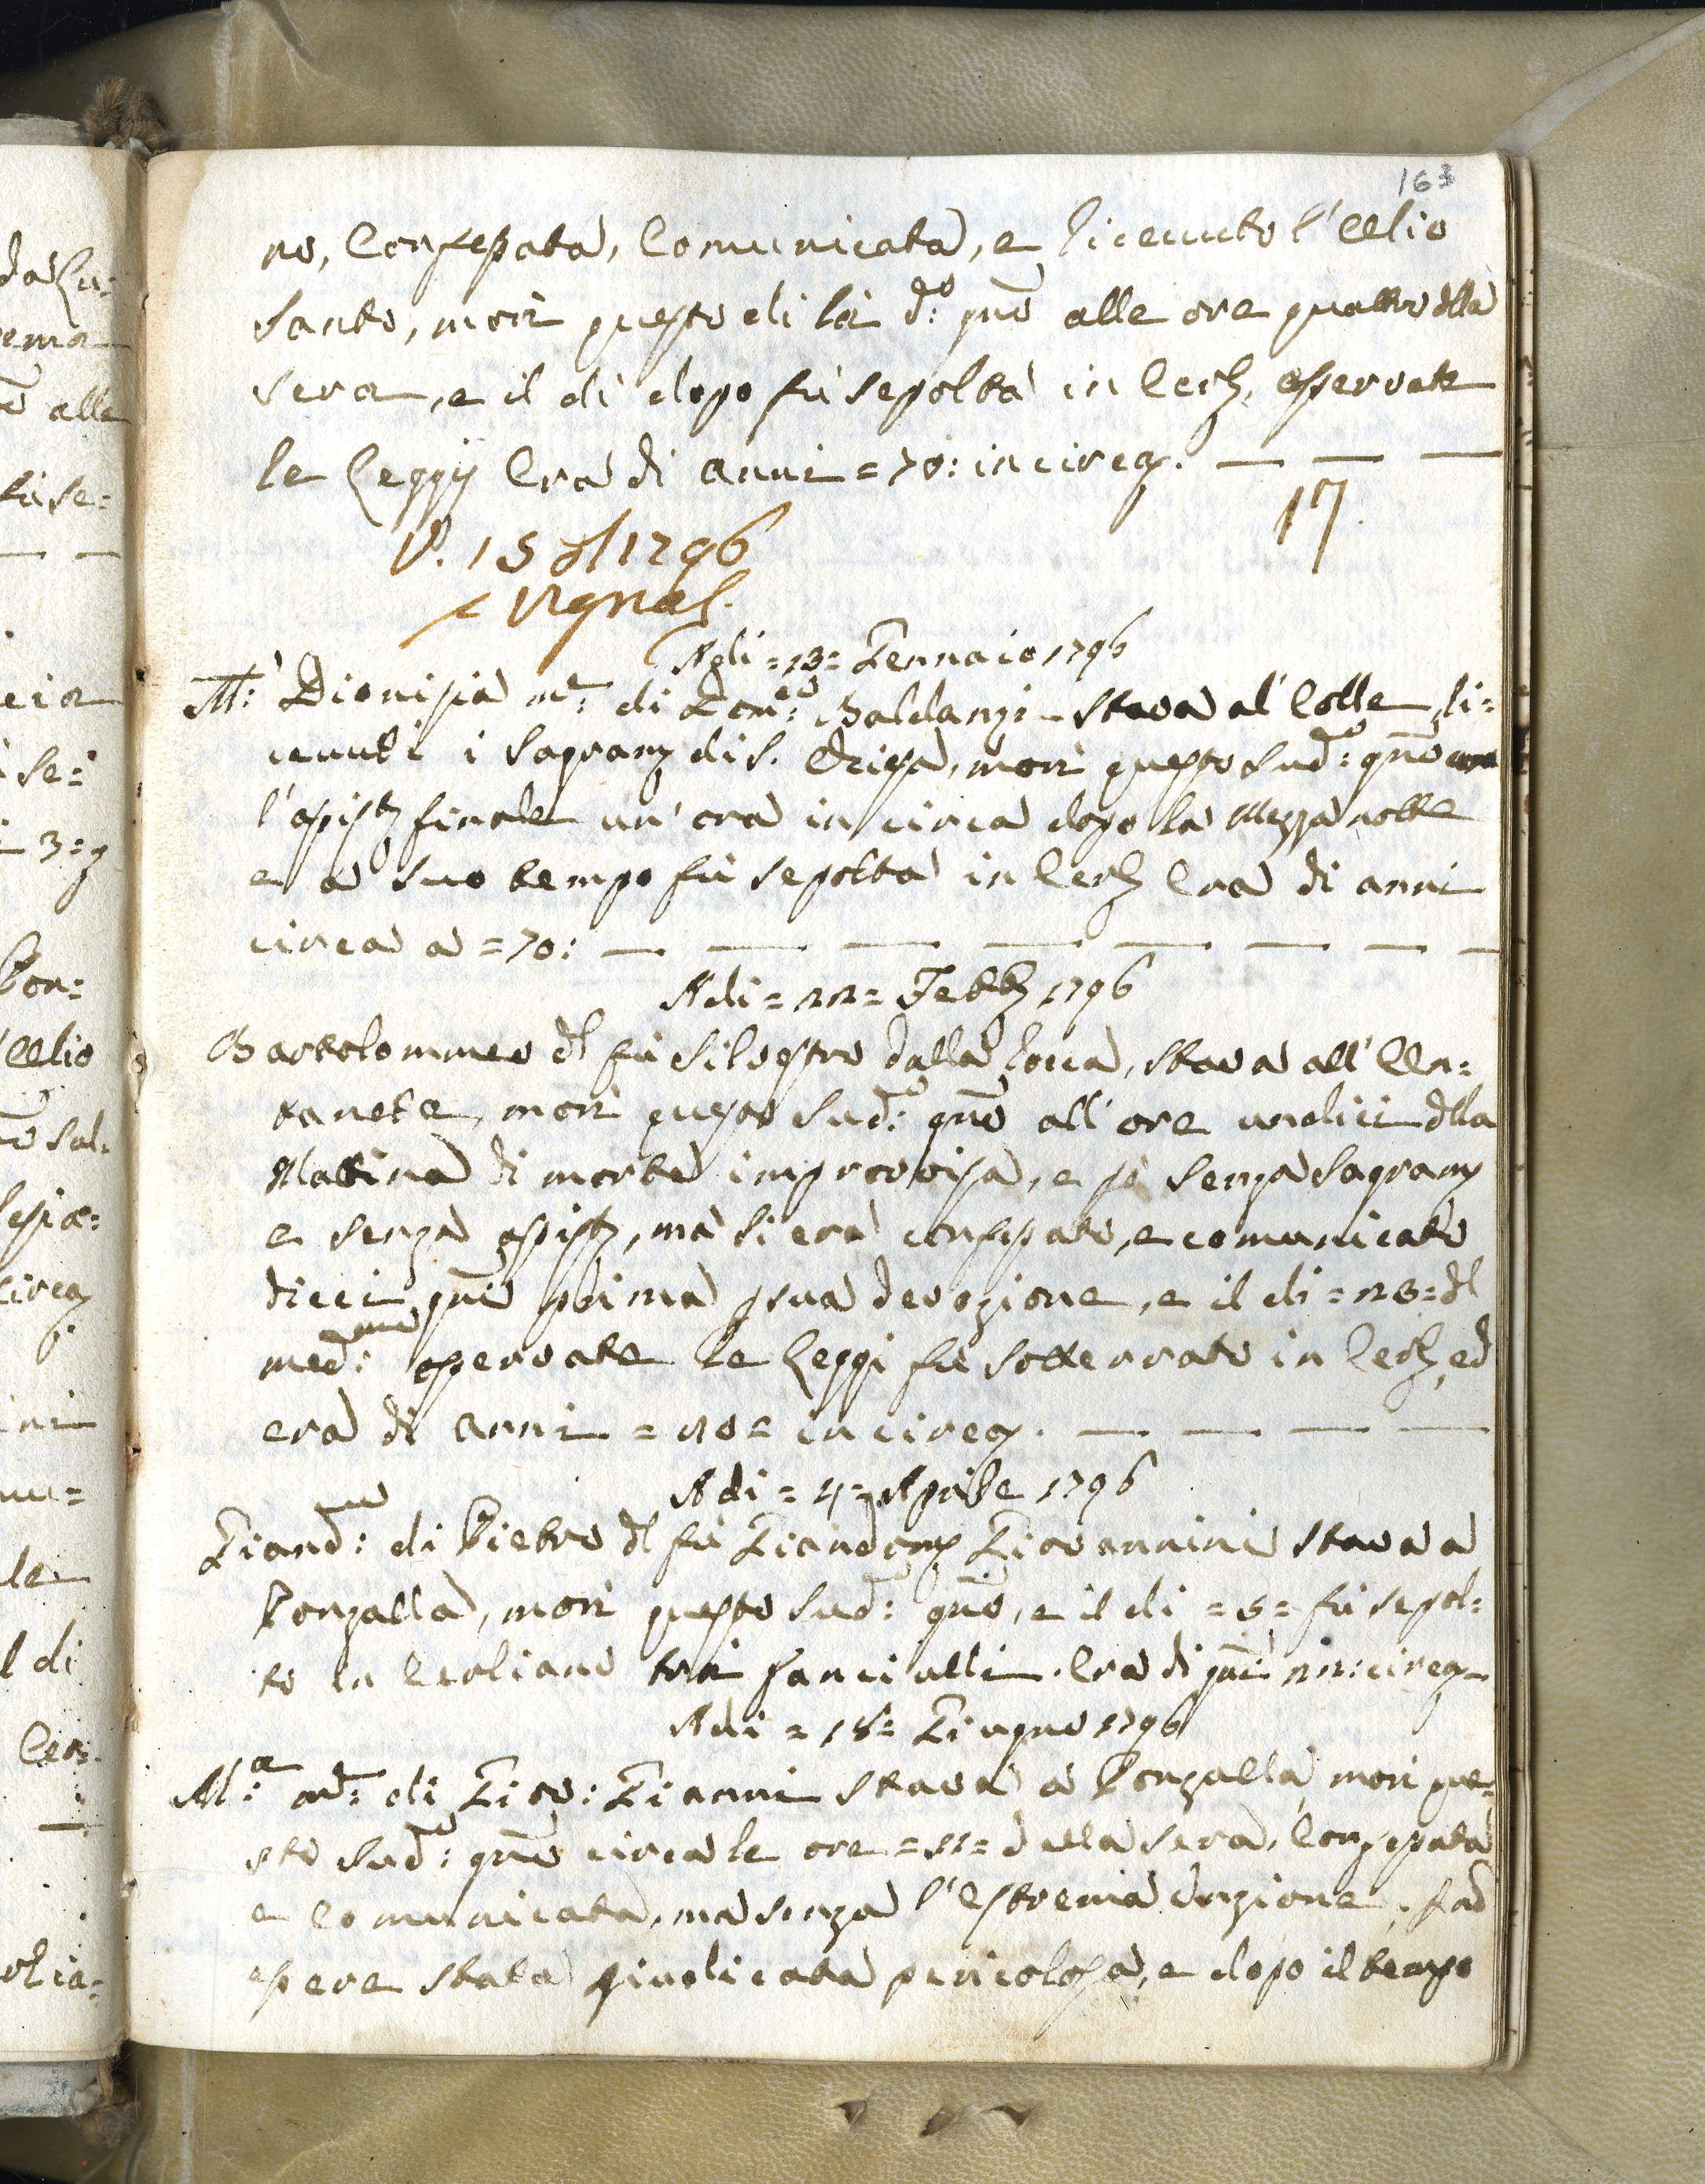 163
no, Confessata, Comunicata, e Ricevuto l'Olio
Santo, morì questo dì là d:º gnō alle ore quattro dlla
sera, e il dì dopo fù sepolta in Cech, osservate
le Leggij Era di anni = 70: in circa. — — —
V. 15 1796 17.
Vignal.
Agli = 13 = Gennaio 1796
M:ª Dionisia mē: di Dom:co Baldanzi stava al' Colle, Ri=
cevuti i Sagramti di S. Chiesa, morì questo sud:º gnō
l'assistza finale un' ora in circa dopo la Mezza notte
e a suo tempo fù sepolta in Cech Era di anni
circa a = 70: — — — — — — — —
Adi = 22 = Febb 1796
Bartolommeo dl fù Silvestro dalla Rocca, stava all'
tanete, morì questo sud:º gnō all' ore undici dlla
Mattina di morte improvvisa, e pò senza Sagramti
e senza assistza, ma si era confessato, e comunicato
dieci gni prima p sua devozione, e il dì = 23 = dl
med:mo osservate le Leggi fù sotterrato in Cech, ed
era di anni = = in circa. — — — —
Adi = 4 = Aprile 1796
Giand:co di Pietro dl fù Giandomco Giovannini stava a
Ponzalla, morì questo sud:º gnō, e il dì = 5 = fù sepol=
to in tra fanciulli. Era di gni 22: circa
Adi = 18 = Giugno 1796
M:ª mē: di Giov: Gianni stava a Ponzalla, morì que=
sto sud:º gnō circa le ore = 11 = della sera, Confessata
e Comunicata, ma senza l'Estrema Unzione,
essere stata giudicata pericolosa, e dopo il tempo